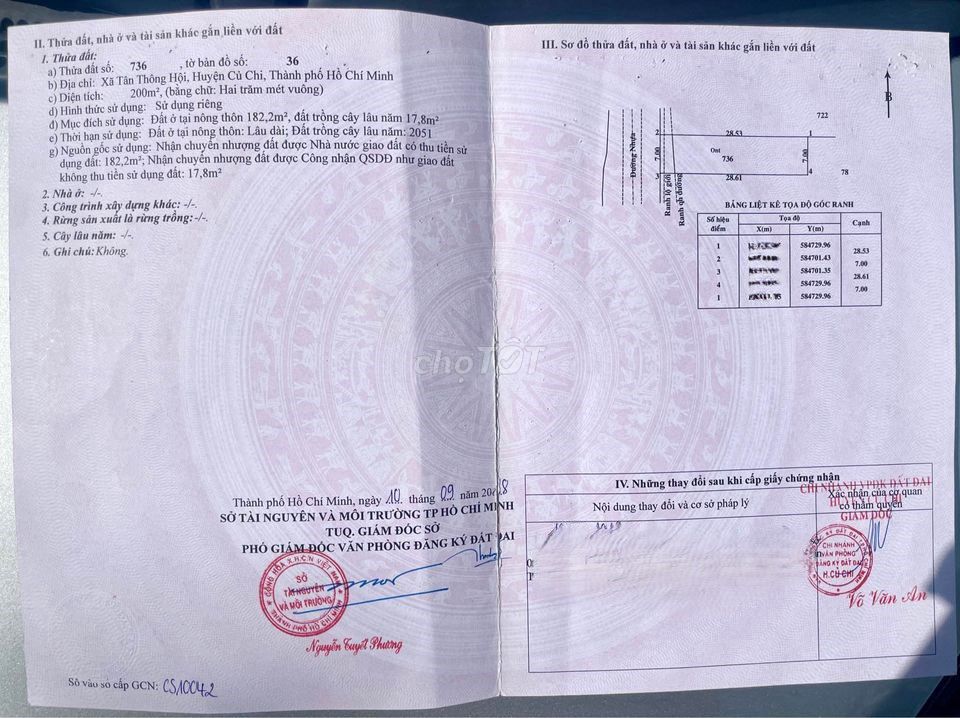 II. Thửa đất, nhà ở và tài sản khác gắn liền với đất
1. Thửa đất:
a) Thửa đất số: 736 , tờ bản đồ số: 36
b) Địa chỉ: Xã Tân Thông Hội, Huyện Củ Chi, Thành phố Hồ Chí Minh
c) Diện tích: 200m², (bằng chữ: Hai trăm mét vuông)
d) Hình thức sử dụng: Sử dụng riêng
đ) Mục đích sử dụng: Đất ở tại nông thôn 182,2m², đất trồng cây lâu năm 17,8m²
e) Thời hạn sử dụng: Đất ở tại nông thôn: Lâu dài; Đất trồng cây lâu năm: 2051
g) Nguồn gốc sử dụng: Nhận chuyển nhượng đất được Nhà nước giao đất có thu tiền sử
dụng đất: 182,2m²; Nhận chuyển nhượng đất được Công nhận QSDĐ như giao đất
không thu tiền sử dụng đất: 17,8m²
2. Nhà ở: -/-.
3. Công trình xây dựng khác: -/-.
4. Rừng sản xuất là rừng trồng: -/-.
5. Cây lâu năm: -/-.
6. Ghi chú: Không.
Thành phố Hồ Chí Minh, ngày 10 tháng 09 năm
SỞ TÀI NGUYÊN VÀ MÔI TRƯỜNG TP HỒ CHÍ MINH
TUQ. GIÁM ĐỐC SỞ
PHÓ GIÁM ĐỐC VĂN PHÒNG ĐĂNG KÝ ĐẤT ĐAI
CỘNG HÒA X.H.C.N VIỆT NAM
SỞ
TÀI NGUYÊN
VÀ MÔI TRƯỜNG
THÀNH PHỐ HỒ CHÍ MINH
Nguyễn Tuyết Phương
Số vào sổ cấp GCN: CS10042
chợTỐT
III. Sơ đồ thửa đất, nhà ở và tài sản khác gắn liền với đất
B
722
2 28.53 1
Đường Nhựa
7.00
Ont
736
7.00
3 28.61 4
78
Ranh lộ giới
Ranh qh đường
BẢNG LIỆT KÊ TỌA ĐỘ GÓC RANH
Số hiệu điểm Tọa độ Cạnh
X(m) Y(m)
1 584729.96
28.53
2 584701.43
7.00
3 584701.35
28.61
4 584729.96
7.00
1 584729.96
IV. Những thay đổi sau khi cấp giấy chứng nhận
Nội dung thay đổi và cơ sở pháp lý
Xác nhận của cơ quan
có thẩm quyền
CHI NHÁNH VPĐK ĐẤT ĐAI
HUYỆN CỦ CHI
GIÁM ĐỐC
CHI NHÁNH
VĂN PHÒNG
ĐĂNG KÝ ĐẤT ĐAI
H.CỦ CHI
Võ Văn An